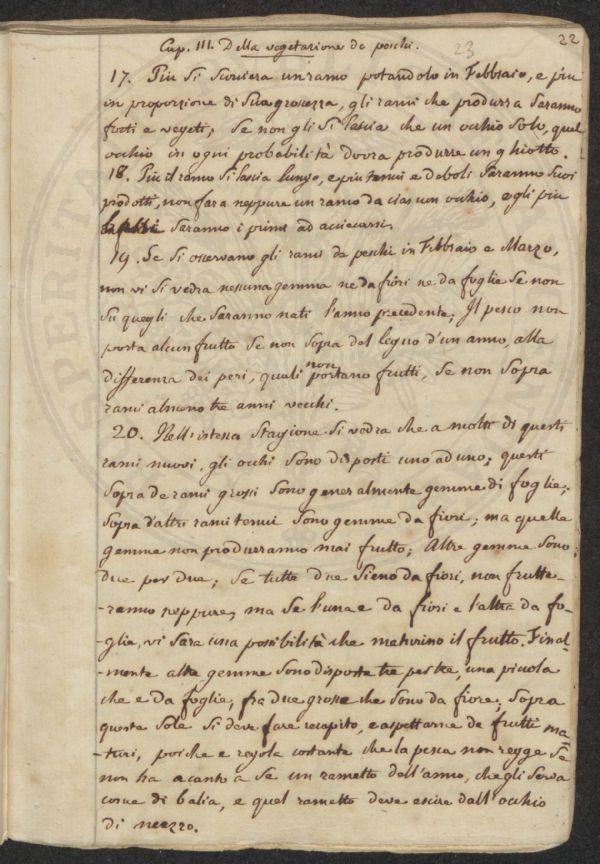 Cap. III. Della vegetazione de peschi.
23
22
17. Piu si scorcera un ramo potandolo in Febbraio, e piu
in proporzione di sua grossezza, gli rami che produrra saranno
forti e vegeti; Se non gli si lascia che un occhio solo, quel
occhio in ogni probabilità dovra produrre un ghiotto.
18. Piu il ramo si lascia lungo, e piu tenui e deboli saranno suoi
prodotti, non fara neppure un ramo da ciascun occhio, e gli piu
saranno i primi ad acciecarsi.
19. Se si osservano gli rami de peschi in Febbraio e Marzo,
non vi si vedra nessuna gemma ne da fiori ne da foglie se non
su quegli che saranno nati l'anno precedente; Il pesco non
porta alcun frutto se non sopra del legno d'un anno, alla
differenza dei peri, quali non portano frutti, se non sopra
rami almeno tre anni vecchi.
20. Nell'istessa stagione si vedra che a molti di questi
rami nuovi, gli occhi sono disposti uno ad uno; questi
sopra de rami grossi sono generalmente gemme di foglie;
sopra d'altri rami tenui sono gemme da fiori; ma quelle
gemme non produrranno mai frutto; Altre gemme sono
due per due; se tutte due sieno da fiori, non frutte-
-ranno neppure, ma se l'una e da fiori e l'altra da fo-
-glia, vi sara una possibilità che maturino il frutto. Final-
-mente altre gemme sono disposte tre per tre, una piccola
che e da foglie, fra due grosse che sono da fiore; sopra
queste sole si deve fare recapito, e aspettarne de frutti ma-
-turi, poiche e regola costante che la pesca non regge se
non ha acanto a se un rametto dell'anno, che gli serva
come di balia, e quel rametto deve escire dall'occhio
di mezzo.